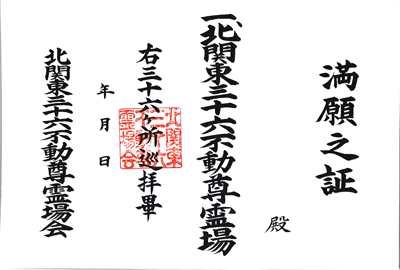 満願之証
殿
一、北関東三十六不動尊霊場
右三十六ヶ所巡拝畢
年　月　日
北関東三十六不動尊霊場会
北関東
三十六
不動尊
霊場会